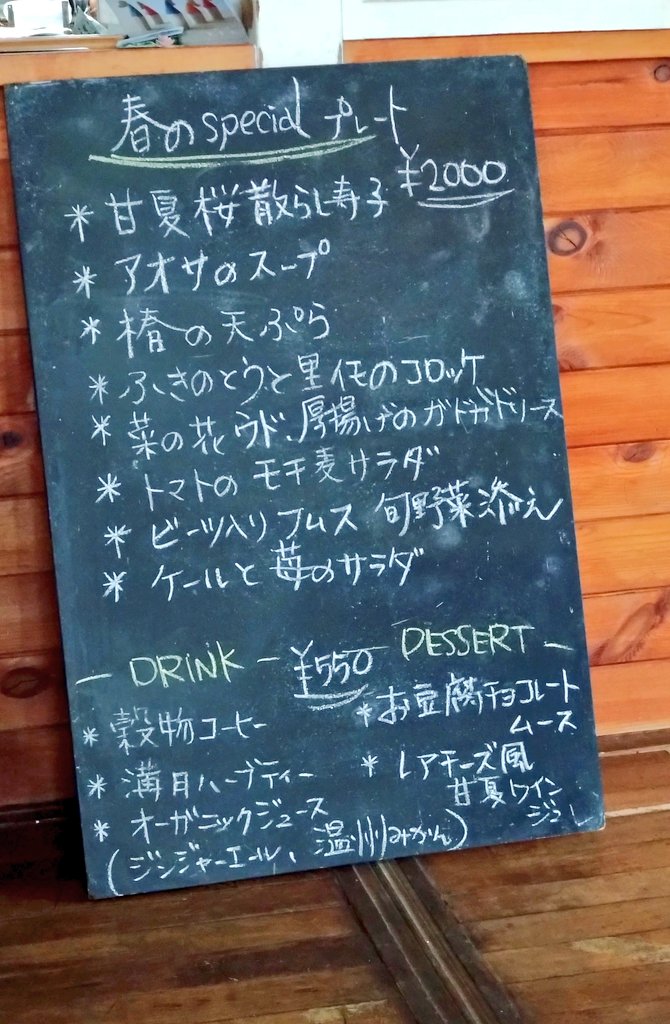 春のspecialプレート
¥2000
* 甘夏桜散らし寿子
* アオサのスープ
* 椿の天ぷら
* ふきのとうと里イモのコロッケ
* 菜の花ウド、厚揚げのガドガドソース
* トマトのモチ麦サラダ
* ビーツ入りフムス 旬野菜添え
* ケールと苺のサラダ
- DRINK - ¥550 DESSERT -
* 穀物コーヒー
* 満月ハーブティー
* オーガニックジュース
(ジンジャーエール、温州みかん)
* お豆腐チョコレート
ムース
* レアチーズ風
甘夏ワイン
ジュレ